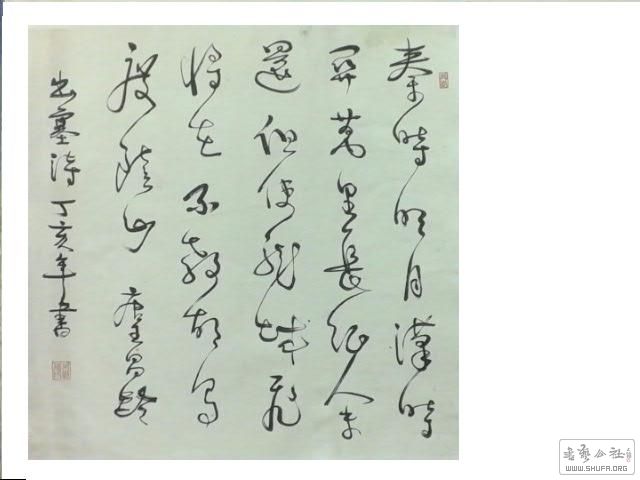 秦时明月汉时
关万里长征人未
还但使龙城飞
将在不教胡马
度阴山 唐昌龄
出塞诗丁亥年书
书艺公社
WWW.SHUFA.ORG